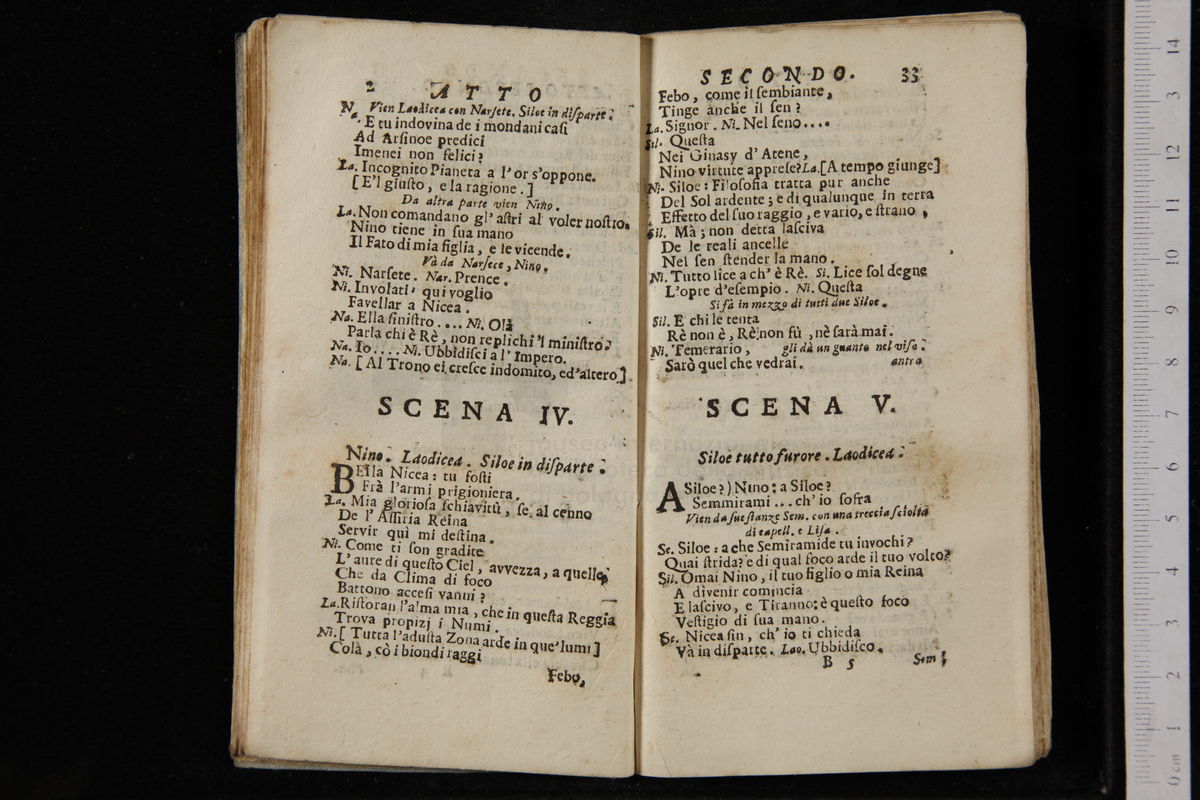 2 ATTO
Vien Laodicea con Narsete. Siloe in disparte.
Na. E tu indovina de i mondani casi
Ad Arsinoe predici
Imenei non felici?
La. Incognito Pianeta a l'or s'oppone.
[E'l giusto, e la ragione.]
Da altra parte vien Nino.
La. Non comandano gl'astri al voler nostro.
Nino tiene in sua mano
Il Fato di mia figlia, e le vicende.
Và da Narsete, Nino.
Ni. Narsete. Nar. Prence.
Ni. Involati: qui voglio
Favellar a Nicea.
Na. Ella sinistro.... Ni. Olà
Parla chi è Rè, non replichi 'l ministro?
Na. Io.... Ni. Ubbidisci a l'Impero.
Na. [Al Trono ei cresce indomito, ed'altero]
SCENA IV.
Nino. Laodicea. Siloe in disparte.
BElla Nicea: tu fosti
Frà l'armi prigioniera.
La. Mia gloriosa schiavitù, se al cenno
De l'Assiria Reina
Servir quì mi destina.
Ni. Come ti son gradite
L'aure di questo Ciel, avvezza, a quelle,
Che da Clima di foco
Battono accesi vanni?
La. Ristoran l'alma mia, che in questa Reggia
Trova propizj i Numi.
Ni. [Tutta l'adusta Zona arde in que'lumi]
Colà, cò i biondi raggi
Febo,
SECONDO. 33
Febo, come il sembiante,
Tinge anche il sen?
La. Signor. Ni. Nel seno....
Sil. Questa
Nei Ginasy d'Atene,
Nino virtute apprese? La. [A tempo giunge]
Ni. Siloe: Filosofia tratta pur anche
Del Sol ardente; e di qualunque in terra
Effetto del suo raggio, e vario, e strano,
Sil. Mà; non detta lasciva
De le reali ancelle
Nel sen stender la mano.
Ni. Tutto lice a ch'è Rè. Si. Lice sol degne
L'opre d'esempio. Ni. Questa
Si fà in mezzo di tutti due Siloe.
Sil. E chi le tenta
Rè non è, Rè non fù, nè sarà mai.
Ni. Temerario, gli dà un guanto nel viso.
Sarò quel che vedrai. antro
SCENA V.
Siloe tutto furore. Laodicea.
A Siloe?) Nino: a Siloe?
Semmirami... ch'io sofra
Vien da sue stanze Sem. con una treccia sciolta
di capell. e Lisa.
Se. Siloe: a che Semiramide tu invochi?
Quai strida? e di qual foco arde il tuo volto?
Sil. Omai Nino, il tuo figlio o mia Reina
A divenir comincia
E lascivo, e Tiranno: è questo foco
Vestigio di sua mano.
Se. Nicea sin, ch'io ti chieda
Và in disparte. Lao. Ubbidisco.
B 5 Sem